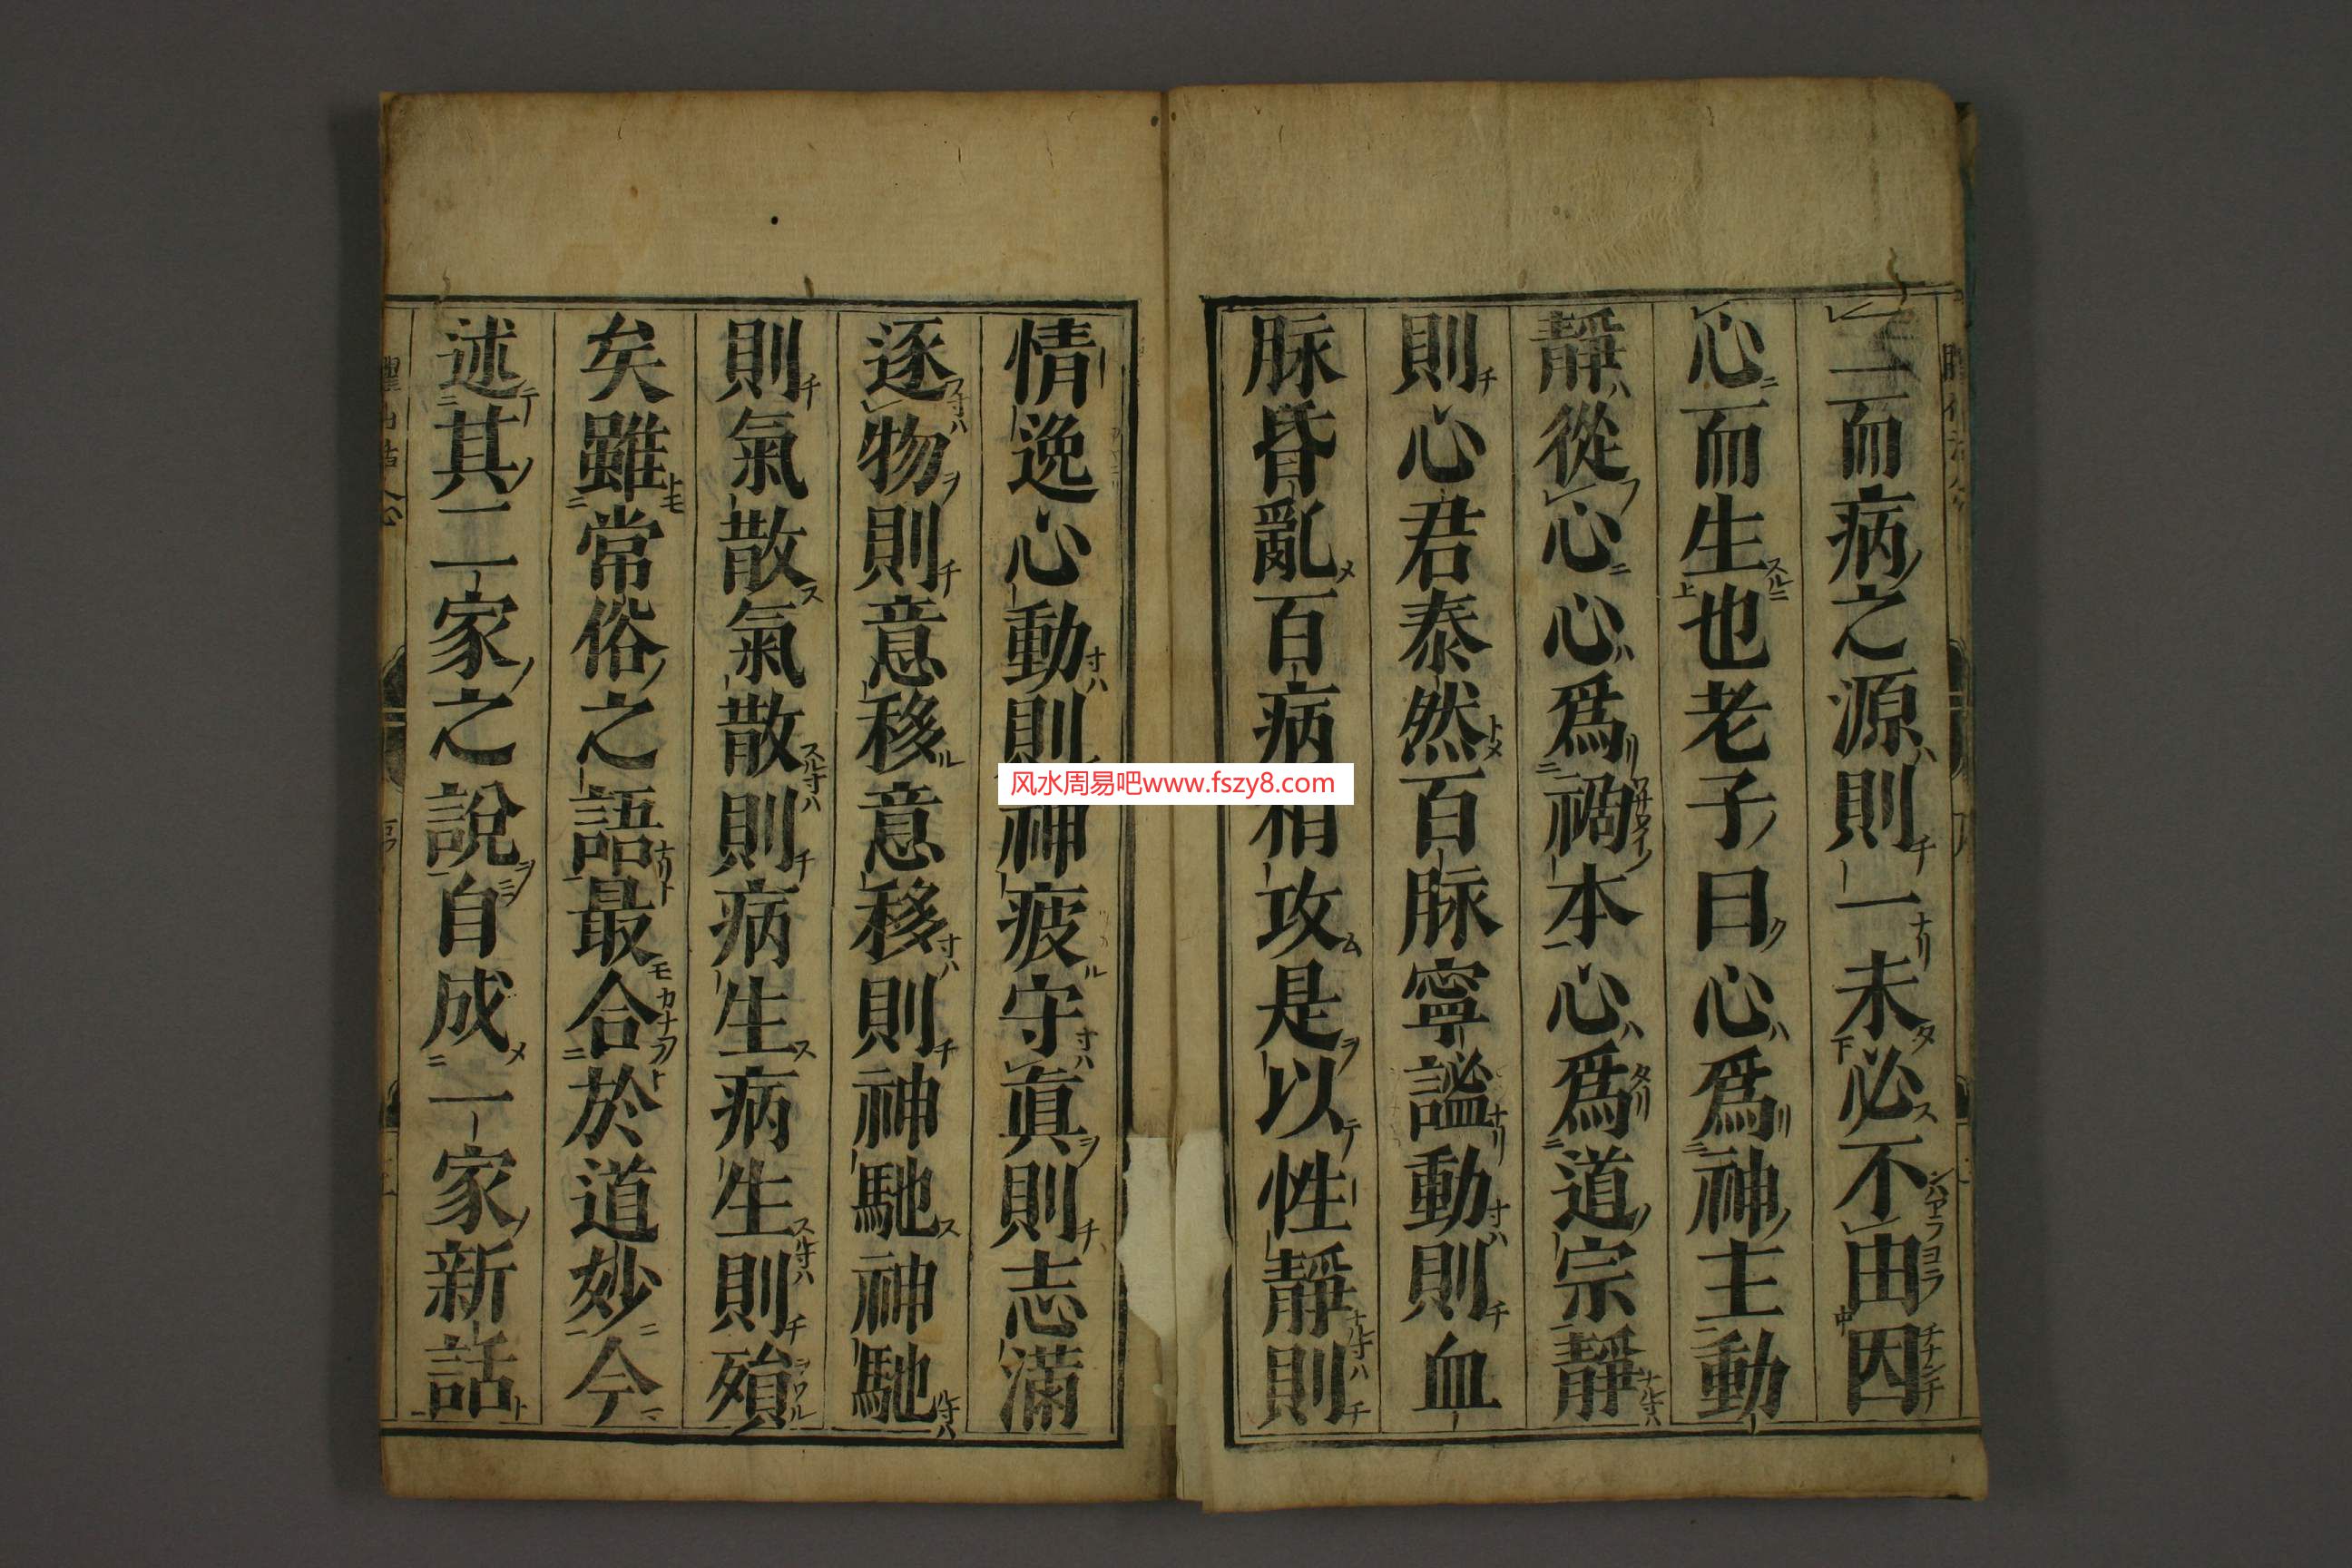 一而病之源則一未必不由因
心而生也老子曰心爲神主動
靜從心心爲禍本心爲道宗靜
則心君泰然百脉寧謐動則血
脉昏亂百病相攻是以性靜則
情逸心動則神疲守眞則志滿
逐物則意移意移則神馳神馳
則氣散氣散則病生病生則殞
矣雖常俗之語最合於道妙今
述其二家之說自成一家新話
风水周易吧www.fszy8.com